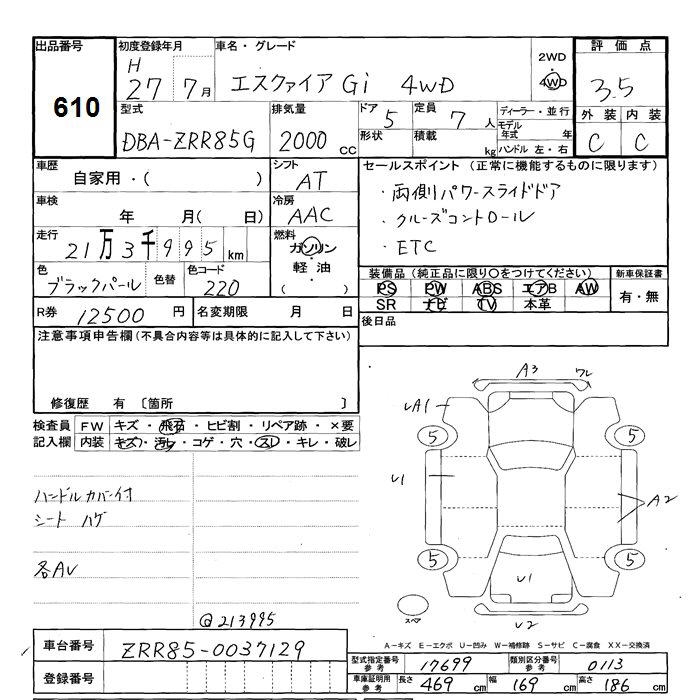 出品番号 初度登録年月 車名・グレード 評価点
610
H 27 7月 エスクァイア Gi 4WD 2WD ・ 4WD 3.5
型式 排気量 ドア 定員 ディーラー・並行 外装 内装
DBA-ZRR85G 2000 cc 5 7人 モデル年式 年 C C
形状 積載 kg ハンドル 左・右
車歴 自家用・( ) シフト AT
セールスポイント (正常に機能するものに限ります)
・両側パワースライドドア
・クルーズコントロール
・ETC
車検 年 月( 日) 冷房 AAC
走行 21万3千995km 燃料 ガソリン・軽油・( )
色 ブラックパール 色替 色コード 220
装備品 (純正品に限り○をつけてください) 新車保証書
PS PW ABS エアB AW 有・無
SR ナビ TV 本革
R券 12500円 名変期限 月 日 後日品
注意事項申告欄 (不具合内容等は具体的に記入して下さい)
修復歴 有 〔箇所 〕
検査員記入欄 FW キズ・飛石・ヒビ割・リペア跡・×要
内装 キズ・汚レ・コゲ・穴・スレ・キレ・破レ
ハンドルカバー付
シート ハゲ
各AU
@213995
A3 ワレ
UA1
5 5
U1 A2
5 5
U1
スペア U2
A-キズ E-エクボ U-凹み W-補修跡 S-サビ C-腐食 XX-交換済
車台番号 ZRR85-0037129
登録番号
型式指定番号 参考 17699 類別区分番号 参考 0113
車庫証明用 参考 長さ 469cm 幅 169cm 高さ 186cm